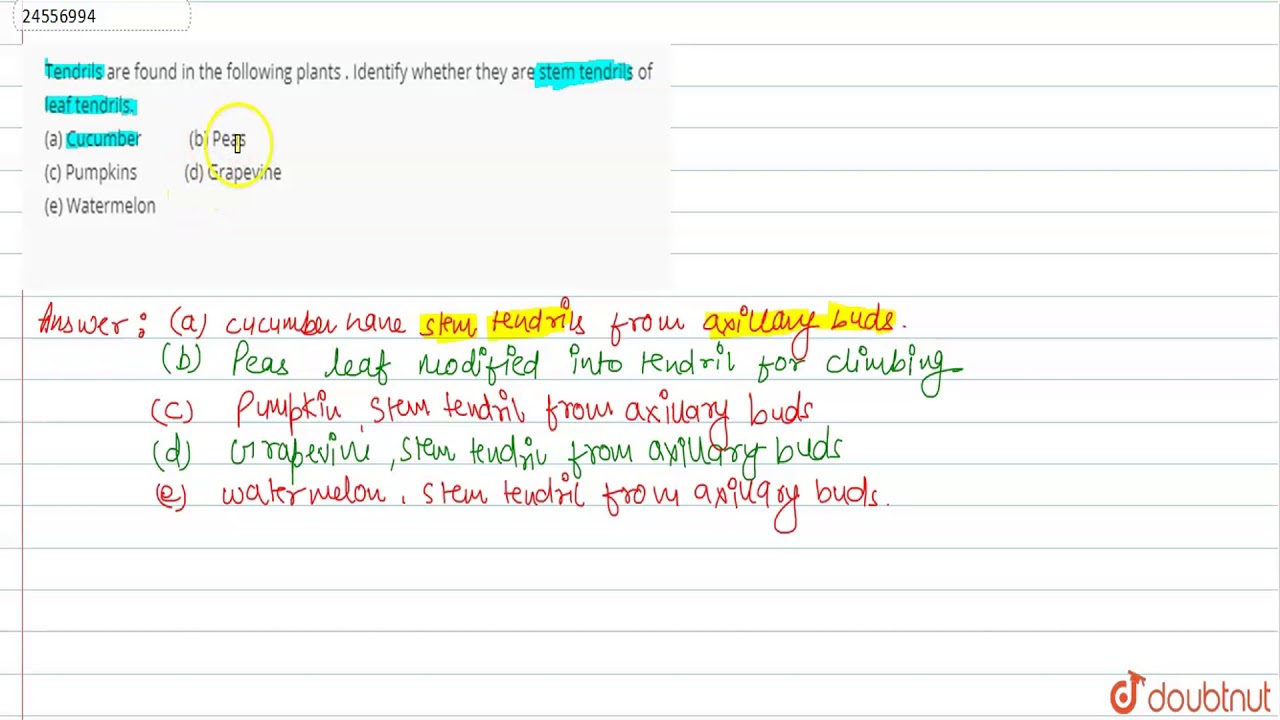 24556994
Tendrils are found in the following plants . Identify whether they are stem tendrils of
leaf tendrils.
(a) Cucumber (b) Peas
(c) Pumpkins (d) Grapevine
(e) Watermelon
Answer : (a) cucumber have stem tendrils from axillary buds.
(b) Peas leaf modified into tendril for climbing
(c) Pumpkin, stem tendril from axillary buds
(d) Grapevine, stem tendril from axillary buds
(e) watermelon, stem tendril from axillary buds.
doubtnut